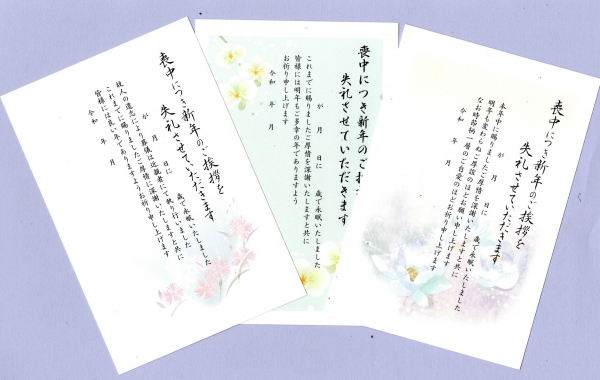 喪中につき新年のご挨拶を
失礼させていただきます
が 月 日に 歳で永眠いたしました
故人の遺志により葬儀は近親者にて執り行いました
これまでに賜りましたご厚情に深謝いたしますと共に
皆様には良い年でありますようお祈り申し上げます
令和 年 月
喪中につき新年のご
失礼させていただきます
が 月 日に 歳で永眠いたしました
これまでに賜りましたご厚情を深謝いたしますと共に
皆様には明年もご多幸の年でありますよう
お祈り申し上げます
令和 年 月
喪中につき新年のご挨拶を
失礼させていただきます
が 月 日に 歳で永眠いたしました
本年中に賜りましたご厚情を深謝いたしますと共に
明年も変わらぬご厚誼のほどお願い申し上げます
なお時節柄一層のご自愛のほどお祈り申し上げます
令和 年 月